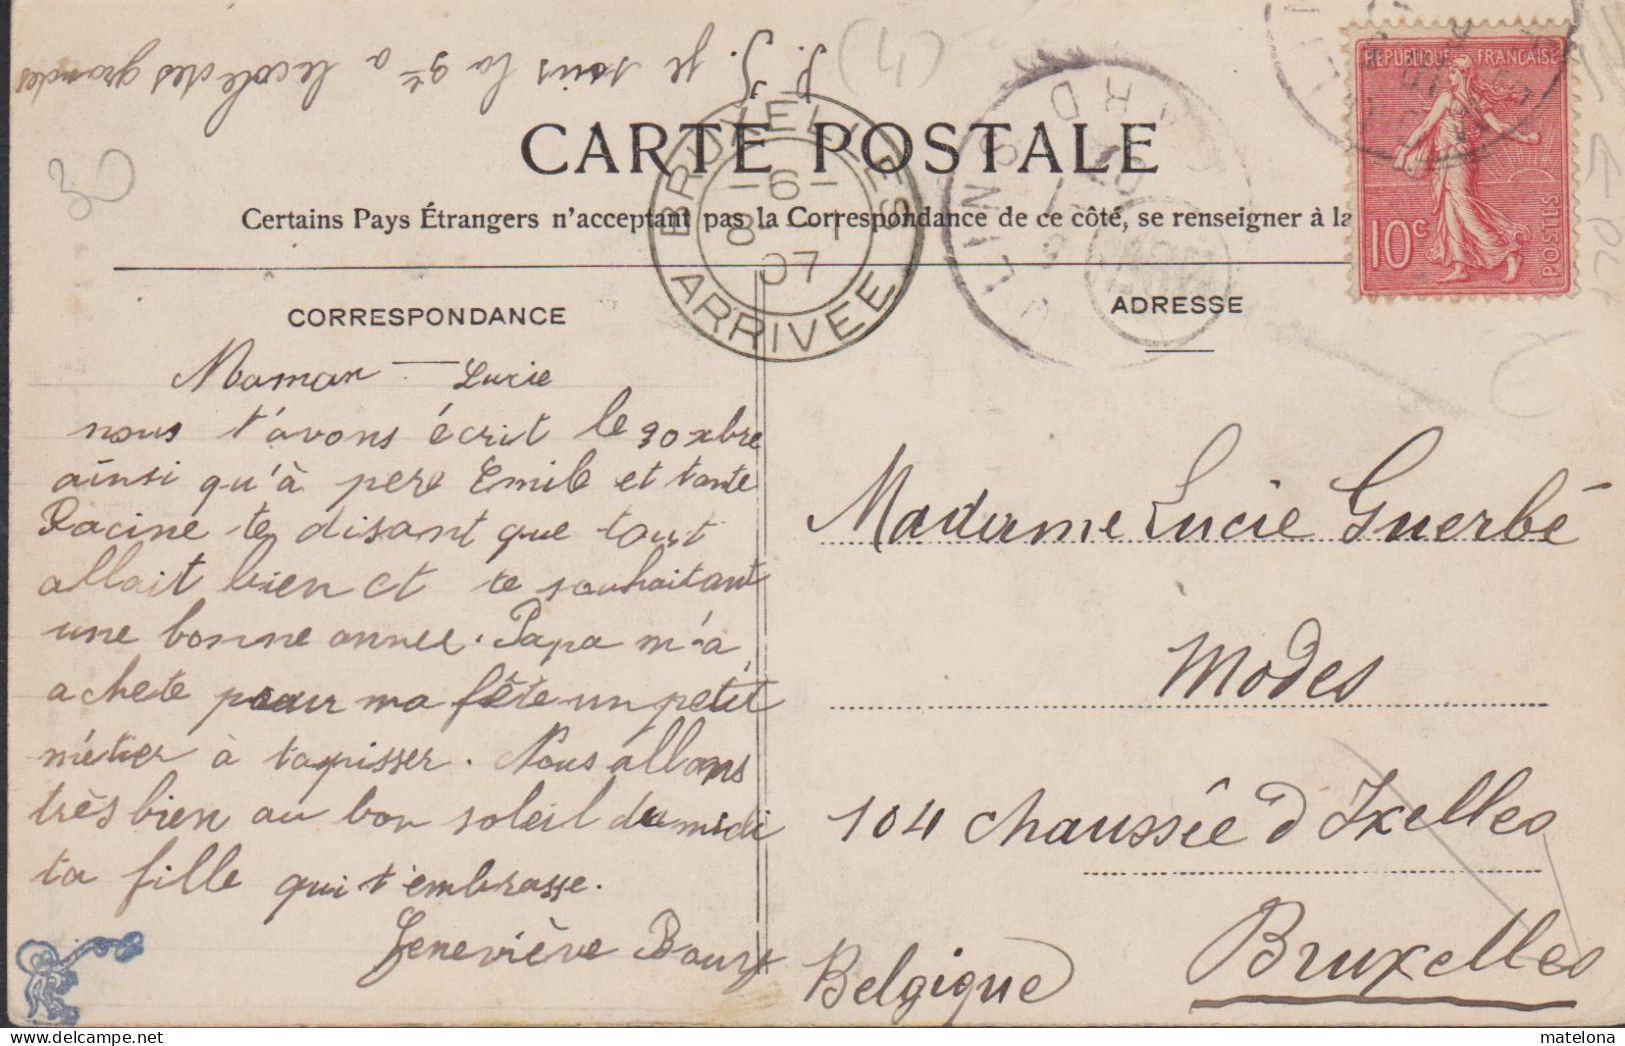 P. S. je suis la 9te a lecole des grandes
(4)
30
CARTE POSTALE
Certains Pays Étrangers n'acceptant pas la Correspondance de ce côté, se renseigner à la
BRUXELLES
-6-
8-1
07
ARRIVEE
REPUBLIQUE FRANÇAISE
10c
POSTES
CORRESPONDANCE
Maman Lucie
nous t'avons écrit le 30 xbre
ainsi qu'à pere Emile et tante
Racine te disant que tout
allait bien et te souhaitant
une bonne année. Papa m'a
achete pour ma fête un petit
métier à tapisser. Nous allons
très bien au bon soleil du midi
ta fille qui t'embrasse.
Geneviève
ADRESSE
Madame Lucie Guerbé
Modes
104 chaussée d'Ixelles
Bruxelles
Belgique
matelona